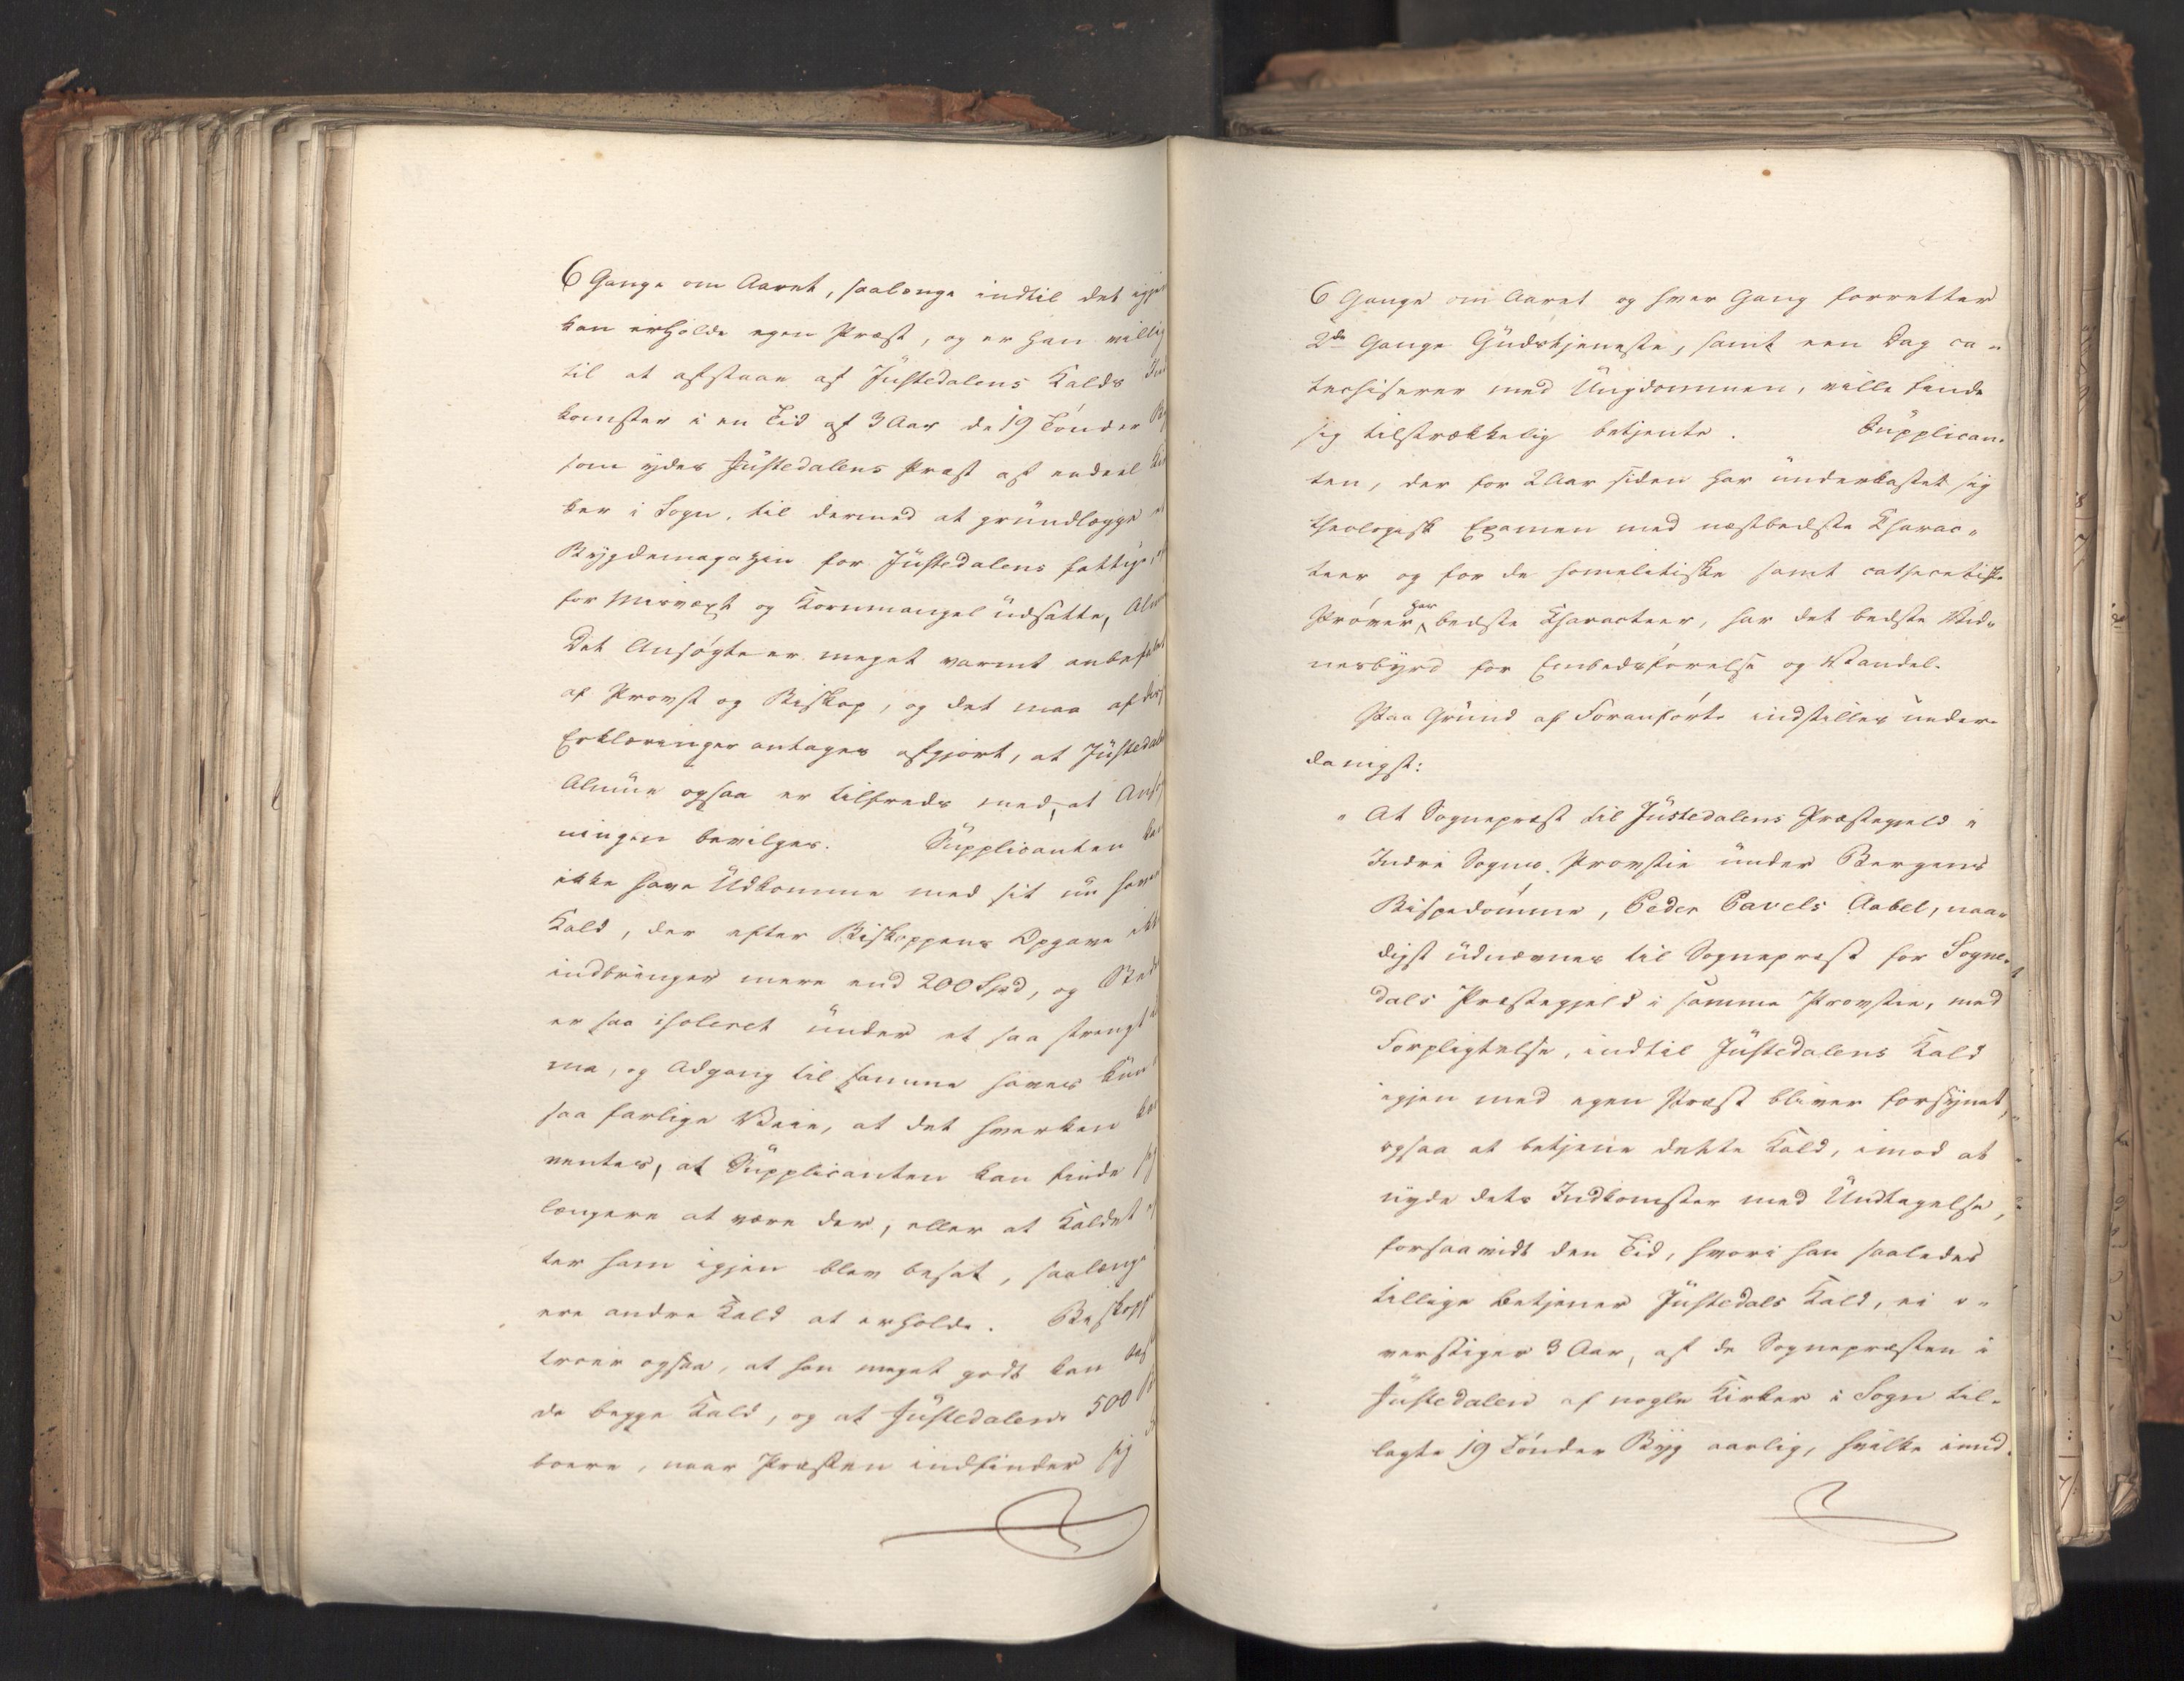 6 Gange om Aaret, saalenge indtil det igjen
kan erholde egen Præst, og er han villig
til at afstaae af Jüstedalens Kalds Ind
komster i en Tid af 3 Aar de 19 Tønder By
som ydes Jüstedalens Præst af endeel Kir
ker i Sogn, til dermed at gründlægge et
Bygdemagazin for Jüstedalens fattige, af
for Misvæxt og Kornmangel üdsatte, Alm
Det Ansøgte er meget varmt anbefalet
af Provst og Biskop, og det maa af diss
Erklæringer antages afgjort, at Jüstedals
Almüe ogsaa er tilfreds med, at Ansø
ningen bevilges. Süpplicanten kan
ikke have Üdkomme med sit nü hav
Kald, der efter Biskoppens Opgave ikke
indbringer mere end 200 Spd, og Sted
er saa isoleret ünder et saa strengt
ma, og Adgang til samme haves kün
saa farlige Veie, at det hverken kan
ventes, at Süpplicanten kan finde sig
længere at være der, eller at Kaldet ef
ter ham igjen blev besat, saalænge
ere andre Kald at erholde. Biskopp
troer ogsaa, at han meget godt kan
de begge Kald, og at Jüstedalens 500
boere, naar Præsten indfinder sig
6 Gange om Aaret og hver Gang forretter
2de Gange Güdstjeneste, samt een Dag ca-
techiserer med Üngdommen, ville finde
sig tilstrækkelig betjente. Süpplican-
ten, der for 2 Aar siden har ünderkastet sig
theologisk Examen med næstbedste Charac-
teer og for de homeletiske samt cathecetiske
Prøver har bedste Characteer, har det bedste Vid-
nesbyrd for Embedsførelse og Vandel.
Paa Gründ af Foranførte indstilles ünder-
danigst:
" At Sognepræst til Jüstedalens Præstegjeld i
Indre Sogns Provstie ünder Bergens
Bispedømme, Peder Pavels Aabel, naa-
digst üdnævnes til Sognepræst for Sogne-
dals Præstegjeld i samme Provstie, med
Forpligtelse, indtil Jüstedalens Kald
igjen med egen Præst bliver forsynet,
ogsaa at betjene dette Kald, imod at
nyde dets Indkomster med Undtagelse,
forsaavidt den Tid, hvori han saaledes
tillige betjener Jüstedals Kald, ei o-
verstiger 3 Aar, af de Sognepræsten i
Jüstedalen af nogle Kirker i Sogn til-
lagte 19 Tønder Byg aarlig, hvilke imid-